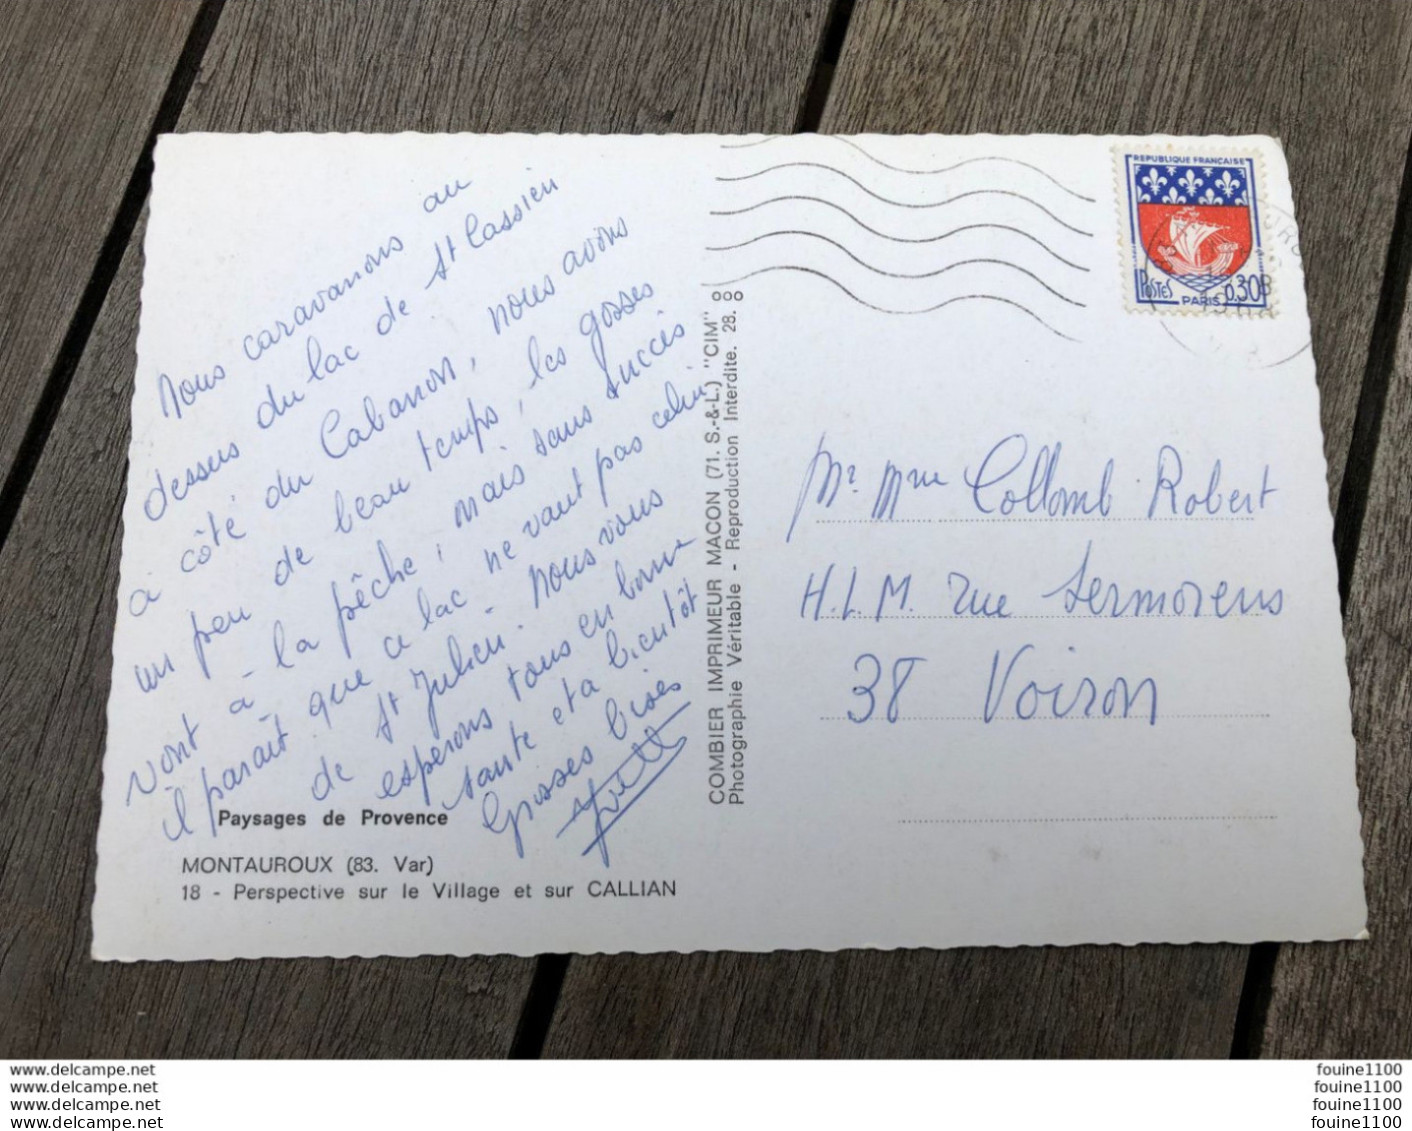 Nous caravanons au
dessus du lac de St Cassien
à côté du Cabanon, nous avons
un peu de beau temps, les gosses
vont à la pêche, mais sans succès
il parait que ce lac ne vaut pas celui
de St Julien. Nous vous
esperons tous en bonne
sante et a bientôt
Grosses bises
Paysages de Provence
MONTAUROUX (83. Var)
18 - Perspective sur le Village et sur CALLIAN
COMBIER IMPRIMEUR MACON (71. S.-&-L.) "CIM"
Photographie Véritable - Reproduction Interdite. 28. 8
REPUBLIQUE FRANÇAISE
POSTES
PARIS
0,30F
Mr Mme Collomb Robert
H.L.M. rue Sermorens
38 Voiron
www.delcampe.net
www.delcampe.net
www.delcampe.net
www.delcampe.net
fouine1100
fouine1100
fouine1100
fouine1100